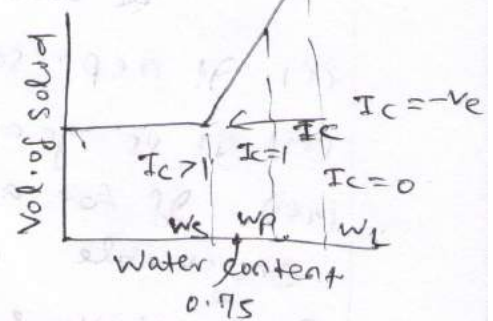 Vol. of solid
Ic = -ve
Ic
Ic > 1
Ic = 1
Ic = 0
Ws
Wp
WL
Water content
0.75